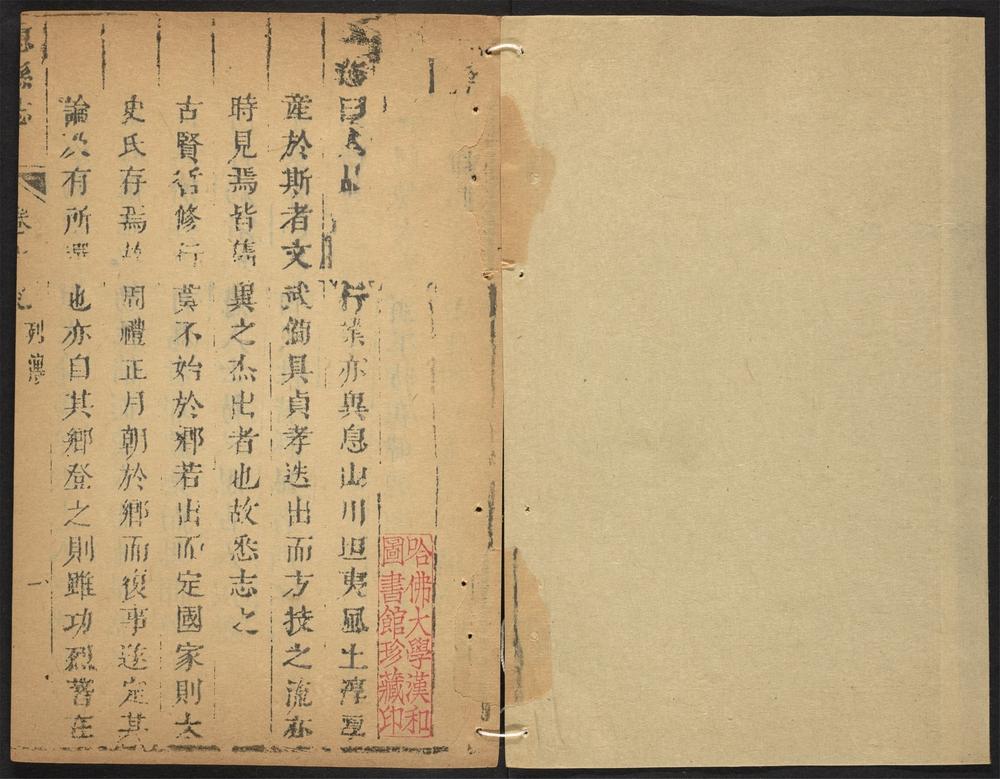 行業亦異息山川坦夷風土淳厚
産於斯者文武備具貞孝迭出而方技之流亦
時見焉皆儁異之杰出者也故悉志之
古賢哲修行莫不始於鄉若出而定國家則太
史氏存焉故周禮正月朝於鄉而復事遂定其
論次有所選也亦自其鄉登之則雖功烈著在
息縣志
列傳
一
哈佛大學漢和
圖書館珍藏印